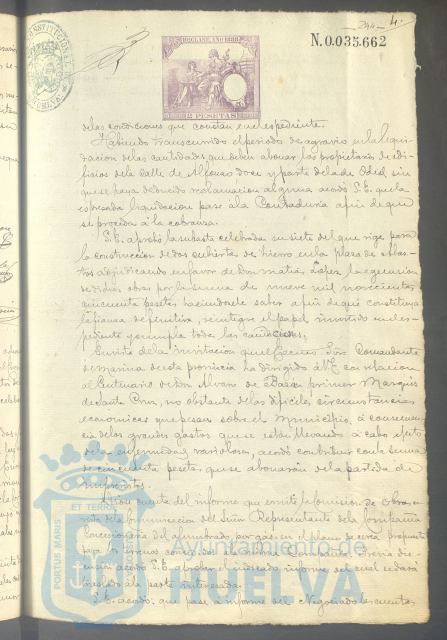 N.0.035.662
10ª CLASE, AÑO 1888
2 PESETAS
de las condiciones que constan en el espediente.
Habiendo transcurrido el periodo de agravio en la liqui-
dacion de las cantidades que deben abonar los propietarios de edi-
ficios de la Calle de Alfonso doce y parte de la de Odiel sin
que se haya deducido reclamacion alguna acordó S.E. que la
espresada liquidacion pase á la Contaduria á fin de que
se proceda á la cobranza.
S.E. aprobó la subasta celebrada en siete del que rige para
la construccion de dos cubiertas de hierro en la plaza de Abas-
tos adjudicando en favor de don Matias Lopez la ejecucion
de dichas obras por la suma de nueve mil novecientas
cincuenta pesetas haciendosele saber á fin de que constituya
la fianza definitiva, reintegre el papel invertido en el es-
pediente y cumpla todas las condiciones.
En vista de la invitacion que el Excmo. Sor. Comandante
de marina de esta provincia ha dirigido á S.E. con relacion
al Centenario de don Alvaro de Bazan primer Marques
de Santa Cruz, no obstante de las dificiles circunstancias
economicas que pesan sobre el municipio, á consecuen-
cia de los grandes gastos que se estan llevando á cabo efecto
de la enfermedad variolosa, acordó contribuir con la suma
de cincuenta pesetas que se abonarán de la partida de
imprevistos.
Dióse cuenta del informe que emite la Comision de Obras
de la comunicacion del Señor Representante de la Compañia
concesionaria del alumbrado por gas
acordó S.E. aprobar el indicado informe del cual se dará
traslado á la parte interesada.
S.E. acordó: que pase á informe del Negociado la cuenta
PORTUS MARIS ET TERRAE
Ayuntamiento de
HUELVA